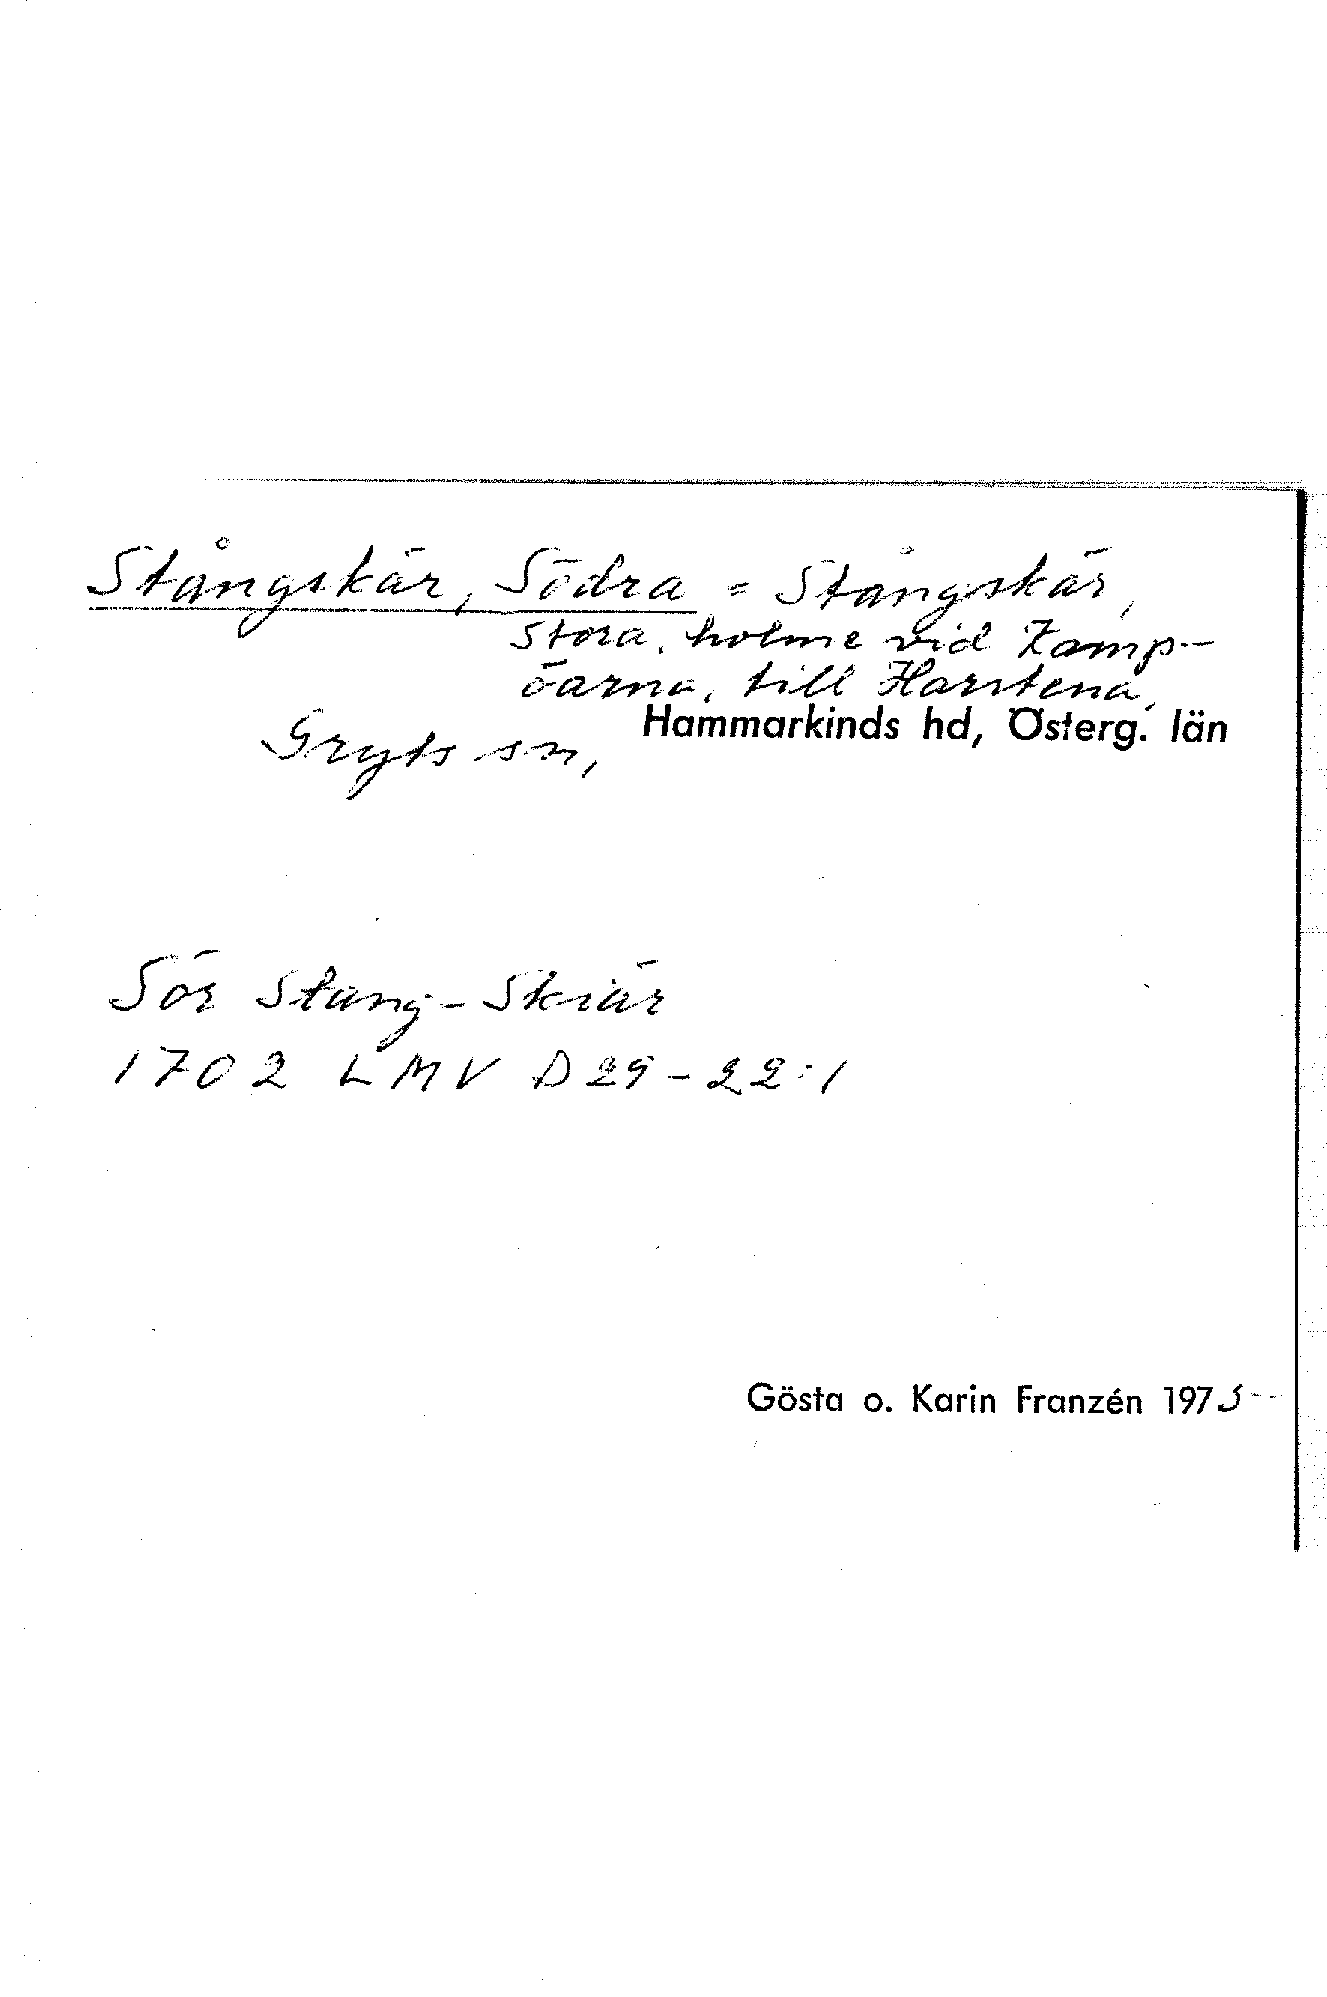 Stångskär, Södra = Stångskär,
Stora, holme vid Kamp-
öarna, till Harstena,
Gryts sn, Hammarkinds hd, Österg. län
Sör Stång-Skiär
1702 LMV D29-22:1
Gösta o. Karin Franzén 1975